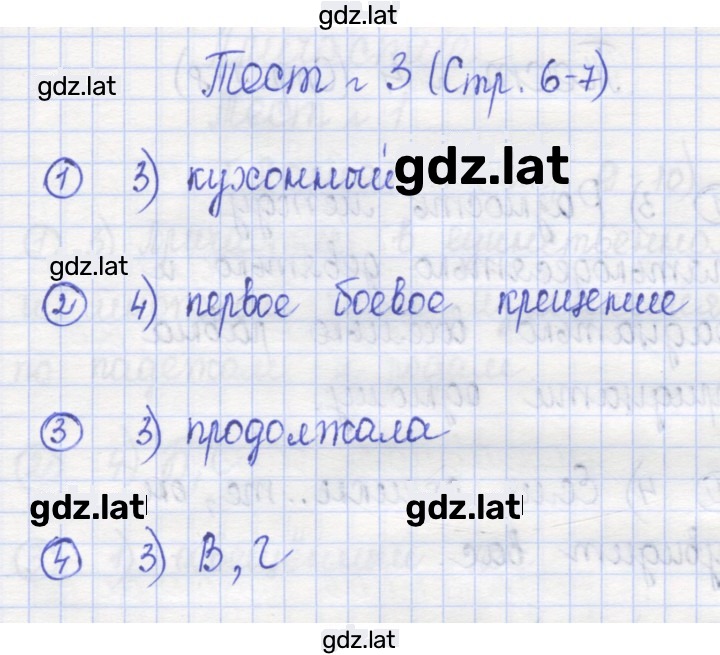 gdz.lat
gdz.lat
Тест г 3 (Стр. 6-7)
1 3) кухонный gdz.lat
gdz.lat
2 4) первое боевое крещение
3 3) продолжала
gdz.lat gdz.lat
4 3) В, Г
gdz.lat